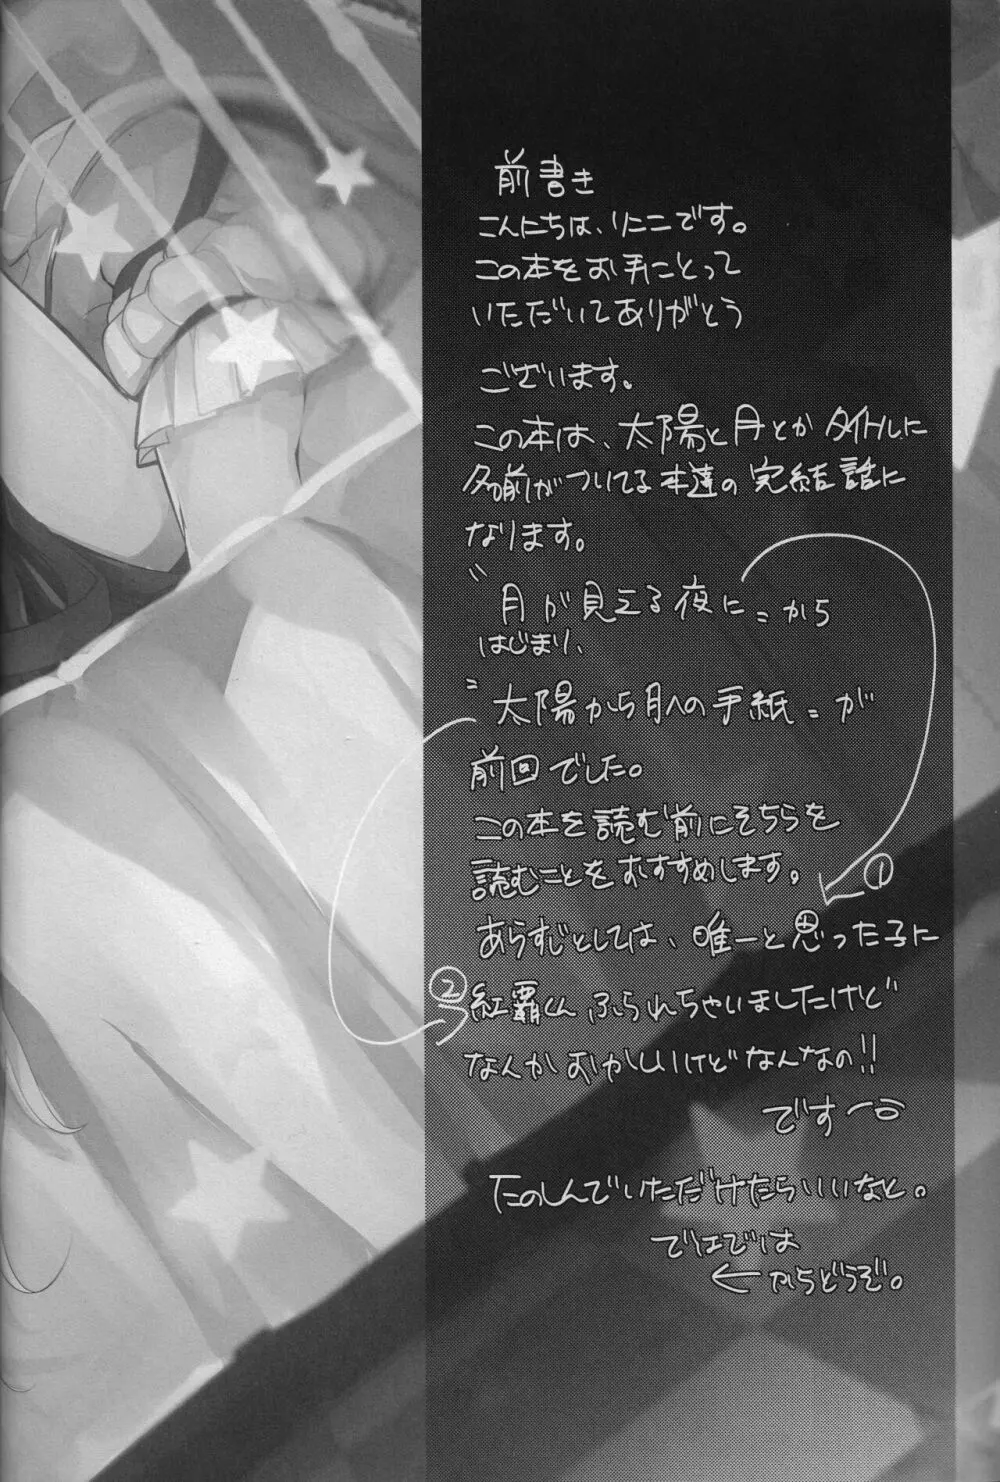 前書き
こんにちは、りニこです。
この本をお手にとって
いただいてありがとう
ございます。
この本は、太陽と月とかタイトルに
名前がついてる本達の完結話に
なります。
"月が見える夜に"から
はじまり、
"太陽から月への手紙"が
前回でした。
この本を読む前にそちらを
読むことをおすすめします。
①
あらすじとしては、唯一と思った子に
②
紅覇くんふられちゃいましたけど
なんかおかしいけどなんなの!!
です〜
たのしんでいただけたらいいなと。
ではでは
←からどうぞ。